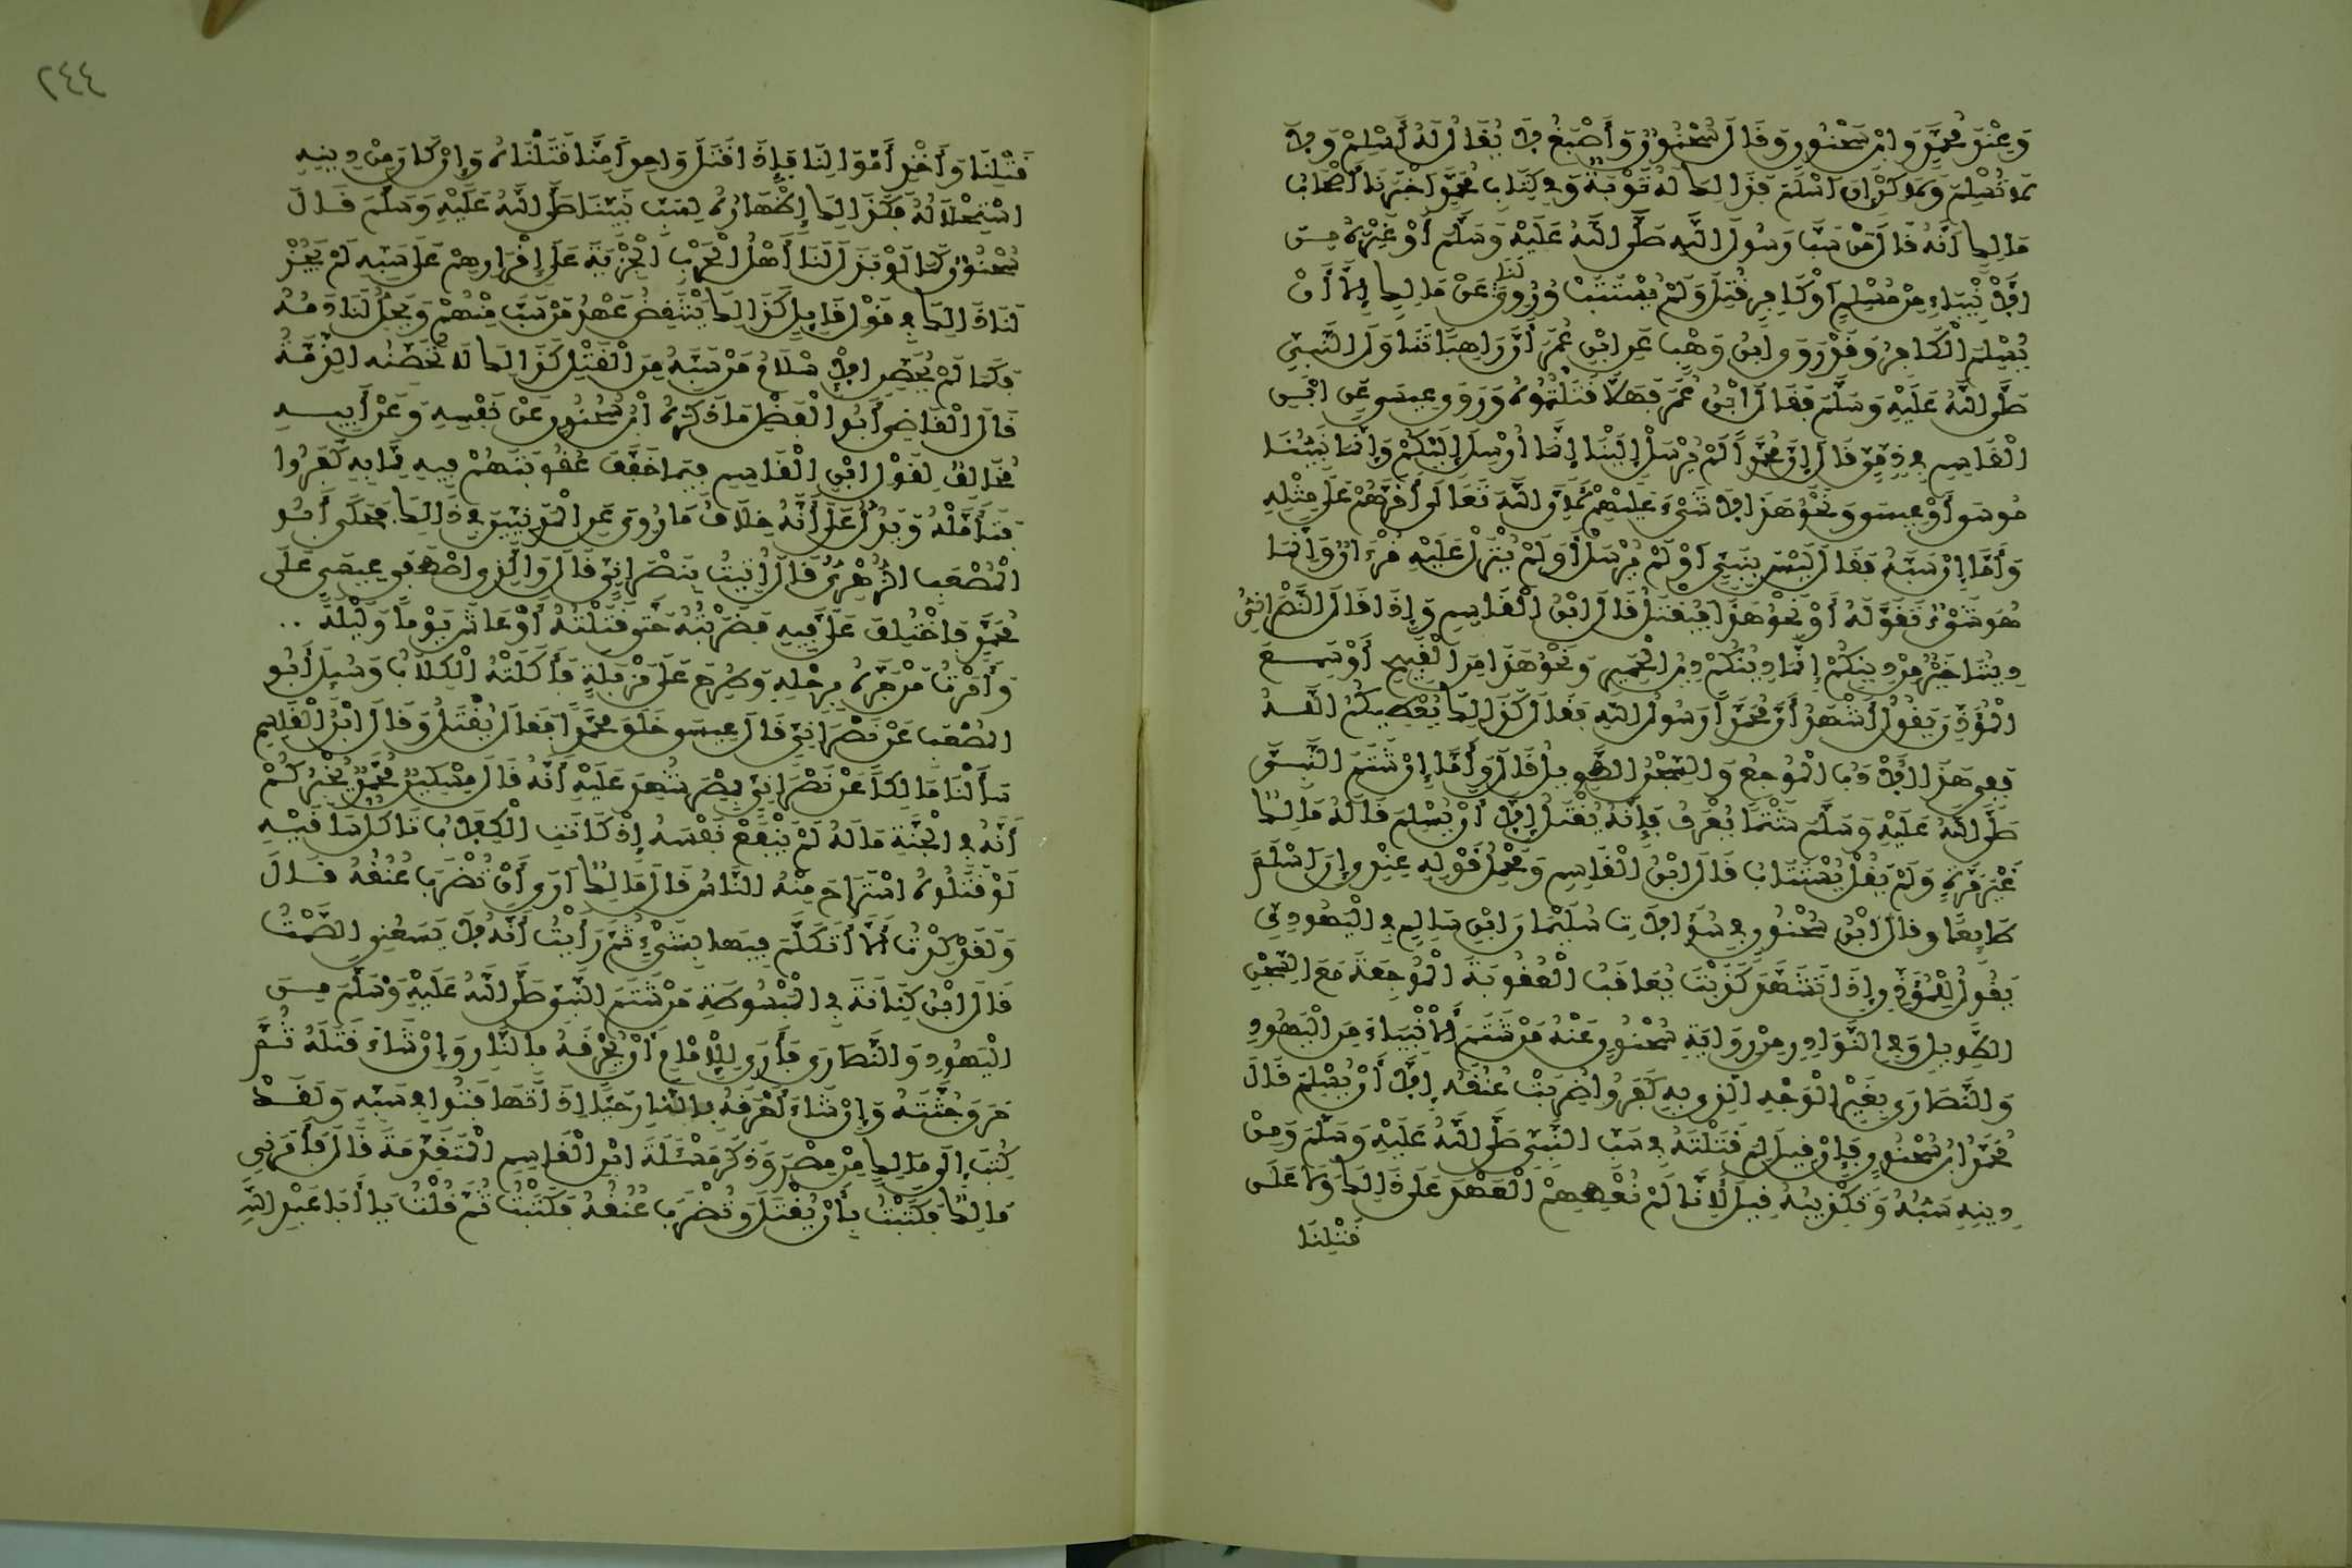 وَعِنْدَ مُحَمَّدٍ وَابْنِ سَحْنُونٍ وَقَالَ سُحْنُونٌ وَأَصْبَغُ لَا يُقَالُ لَهُ أَسْلِمْ وَلَا
لَا تُسْلِمْ وَلَكِنْ إِنْ أَسْلَمَ فَذَالِكَ لَهُ تَوْبَةٌ وَفِي كِتَابِ مُحَمَّدٍ أَخْبَرَنَا أَصْحَابُ
مَالِكٍ أَنَّهُ قَالَ مَنْ سَبَّ رَسُولَ اللَّهِ صَلَّى اللَّهُ عَلَيْهِ وَسَلَّمَ أَوْ غَيْرَهُ مِنَ
الْأَنْبِيَاءِ مِنْ مُسْلِمٍ أَوْ كَافِرٍ قُتِلَ وَلَمْ يُسْتَتَبْ وَرُوِيَ لَنَا عَنْ مَالِكٍ إِلَّا أَنْ
يُسْلِمَ الْكَافِرُ وَقَدْ رَوَى ابْنُ وَهْبٍ عَنِ ابْنِ عُمَرَ أَنَّ رَاهِبًا تَنَاوَلَ النَّبِيَّ
صَلَّى اللَّهُ عَلَيْهِ وَسَلَّمَ فَقَالَ ابْنُ عُمَرَ فَهَلَّا قَتَلْتُمُوهُ وَرَوَى عِيسَى عَنِ ابْنِ
الْقَاسِمِ فِي ذِمِّيٍّ قَالَ إِنَّ مُحَمَّدًا لَمْ يُرْسَلْ إِلَيْنَا إِنَّمَا أُرْسِلَ إِلَيْكُمْ وَإِنَّمَا نَبِيُّنَا
مُوسَى أَوْ عِيسَى وَنَحْوُ هَذَا لَا شَيْءَ عَلَيْهِمْ لِأَنَّ اللَّهَ تَعَالَى أَقَرَّهُمْ عَلَى مِثْلِهِ
وَأَمَّا إِنْ سَبَّهُ فَقَالَ لَيْسَ بِنَبِيٍّ أَوْ لَمْ يُرْسَلْ أَوْ لَمْ يُنْزَلْ عَلَيْهِ قُرْءَانٌ وَإِنَّمَا
هُوَ شَيْءٌ تَقَوَّلَهُ أَوْ نَحْوُ هَذَا فَيُقْتَلُ قَالَ ابْنُ الْقَاسِمِ وَإِذَا قَالَ النَّصْرَانِيُّ
دِينُنَا خَيْرٌ مِنْ دِينِكُمْ إِنَّمَا دِينُكُمْ دِينُ الْحَمِيرِ وَنَحْوُ هَذَا مِنَ الْقَبِيحِ أَوْ سَمِعَ
الْمُؤَذِّنَ يَقُولُ أَشْهَدُ أَنَّ مُحَمَّدًا رَسُولُ اللَّهِ فَقَالَ كَذَالِكَ يُعْطِيكُمُ اللَّهُ
فَفِي هَذَا الْأَدَبُ الْمُوجِعُ وَالسِّجْنُ الطَّوِيلُ قَالَ وَأَمَّا إِنْ شَتَمَ النَّبِيَّ
صَلَّى اللَّهُ عَلَيْهِ وَسَلَّمَ شَتْمًا يُعْرَفُ فَإِنَّهُ يُقْتَلُ إِلَّا أَنْ يُسْلِمَ قَالَهُ مَالِكٌ
غَيْرَ مَرَّةٍ وَلَمْ يَقُلْ يُسْتَتَابُ قَالَ ابْنُ الْقَاسِمِ وَمَحْمِلُ قَوْلِهِ عِنْدِي إِنْ أَسْلَمَ
طَائِعًا وَقَالَ ابْنُ سُحْنُونٍ فِي سُؤَالَاتِ سُلَيْمَانَ ابْنِ سَالِمٍ فِي الْيَهُودِيِّ
يَقُولُ لِلْمُؤَذِّنِ إِذَا تَشَهَّدَ كَذَبْتَ يُعَاقَبُ الْعُقُوبَةَ الْمُوجِعَةَ مَعَ السِّجْنِ
الطَّوِيلِ وَفِي النَّوَادِرِ مِنْ رِوَايَةِ سُحْنُونٍ عَنْهُ مَنْ شَتَمَ الْأَنْبِيَاءَ مِنَ الْيَهُودِ
وَالنَّصَارَى بِغَيْرِ الْوَجْهِ الَّذِي بِهِ كَفَرُوا ضُرِبَتْ عُنُقُهُ إِلَّا أَنْ يُسْلِمَ قَالَ
مُحَمَّدُ ابْنُ سُحْنُونٍ فَإِنْ قِيلَ لِمَ قَتَلْتَهُ فِي سَبِّ النَّبِيِّ صَلَّى اللَّهُ عَلَيْهِ وَسَلَّمَ وَمِنْ
دِينِهِ سَبُّهُ وَتَكْذِيبُهُ قِيلَ لِأَنَّا لَمْ نُعْطِهِمْ الْعَهْدَ عَلَى ذَالِكَ وَلَا عَلَى
قَتْلِنَا
قَتْلِنَا وَأَخْذِ أَمْوَالِنَا فَإِذَا قَتَلَ وَاحِدًا مِنَّا قَتَلْنَاهُ وَإِنْ كَانَ مِنْ دِينِهِ
اسْتِحْلَالُهُ فَكَذَالِكَ إِظْهَارُهُ لِسَبِّ نَبِيِّنَا صَلَّى اللَّهُ عَلَيْهِ وَسَلَّمَ قَالَ
سُحْنُونٌ كَمَا لَوْ بَذَلَ لَنَا أَهْلُ الْحَرْبِ الْجِزْيَةَ عَلَى إِقْرَارِهِمْ عَلَى سَبِّهِ لَمْ يَجُزْ
لَنَا ذَالِكَ فِي قَوْلِ قَائِلٍ كَذَالِكَ يَنْتَقِضُ عَهْدُ مَنْ سَبَّ مِنْهُمْ وَيَحِلُّ لَنَا دَمُهُ
فَكَمَا لَمْ يُحَصِّنِ الْإِسْلَامُ مَنْ سَبَّهُ مِنَ الْقَتْلِ كَذَالِكَ لَا تُحَصِّنُهُ الذِّمَّةُ
قَالَ الْقَاضِي أَبُو الْفَضْلِ مَا ذَكَرَهُ ابْنُ سُحْنُونٍ عَنْ نَفْسِهِ وَعَنْ أَبِيهِ
مُخَالِفٌ لِقَوْلِ ابْنِ الْقَاسِمِ فِيمَا خَفَّفَ عُقُوبَتَهُمْ فِيهِ مِمَّا بِهِ كَفَرُوا
فَتَأَمَّلْهُ وَيَدُلُّ عَلَى أَنَّهُ خِلَافُ مَا رُوِيَ عَنِ الْمَدَنِيِّينَ فِي ذَالِكَ فَحَكَى أَبُو
الْمُصْعَبِ الزُّهْرِيُّ قَالَ أُتِيتُ بِنَصْرَانِيٍّ قَالَ وَالَّذِي اصْطَفَى عِيسَى عَلَى
مُحَمَّدٍ فَاخْتُلِفَ عَلَيَّ فِيهِ فَضَرَبْتُهُ حَتَّى قَتَلْتُهُ أَوْ عَاشَ يَوْمًا وَلَيْلَةً ..
وَأَمَرْتُ مَنْ جَرَّهُ بِرِجْلِهِ وَطُرِحَ عَلَى مَزْبَلَةٍ فَأَكَلَتْهُ الْكِلَابُ وَسُئِلَ أَبُو
الْمُصْعَبِ عَنْ نَصْرَانِيٍّ قَالَ عِيسَى خَلَقَ مُحَمَّدًا فَقَالَ يُقْتَلُ وَقَالَ ابْنُ الْقَاسِمِ
سَأَلْنَا مَالِكًا عَنْ نَصْرَانِيٍّ بِمِصْرَ شُهِدَ عَلَيْهِ أَنَّهُ قَالَ مِسْكِينٌ مُحَمَّدٌ يُخْبِرُكُمْ
أَنَّهُ فِي الْجَنَّةِ مَا لَهُ لَمْ يَنْفَعْ نَفْسَهُ إِذْ كَانَتِ الْكِلَابُ تَأْكُلُ سَاقَيْهِ
لَوْ قَتَلُوهُ اسْتَرَاحَ مِنْهُ النَّاسُ قَالَ مَالِكٌ أَرَى أَنْ تُضْرَبَ عُنُقُهُ قَالَ
وَلَقَدْ كِدْتُ أَلَّا أَتَكَلَّمَ فِيهَا بِشَيْءٍ ثُمَّ رَأَيْتُ أَنَّهُ لَا يَسَعُنِي الصَّمْتُ
قَالَ ابْنُ كِنَانَةَ فِي الْمَبْسُوطَةِ مَنْ شَتَمَ النَّبِيَّ صَلَّى اللَّهُ عَلَيْهِ وَسَلَّمَ مِنَ
الْيَهُودِ وَالنَّصَارَى فَأَرَى لِلْإِمَامِ أَنْ يُحْرِقَهُ بِالنَّارِ وَإِنْ شَاءَ قَتَلَهُ ثُمَّ
حَرَقَ جُثَّتَهُ وَإِنْ شَاءَ أَحْرَقَهُ بِالنَّارِ حَيًّا إِذَا تَهَافَتُوا فِي سَبِّهِ وَلَقَدْ
كُتِبَ إِلَى مَالِكٍ مِنْ مِصْرَ وَذَكَرَ مَسْئَلَةَ ابْنِ الْقَاسِمِ الْمُتَقَدِّمَةَ قَالَ فَأَمَرَنِي
مَالِكٌ فَكَتَبْتُ بِأَنْ يُقْتَلَ وَتُضْرَبَ عُنُقُهُ فَكَتَبْتُ ثُمَّ قُلْتُ يَا أَبَا عَبْدِ اللَّهِ
٢٤٤